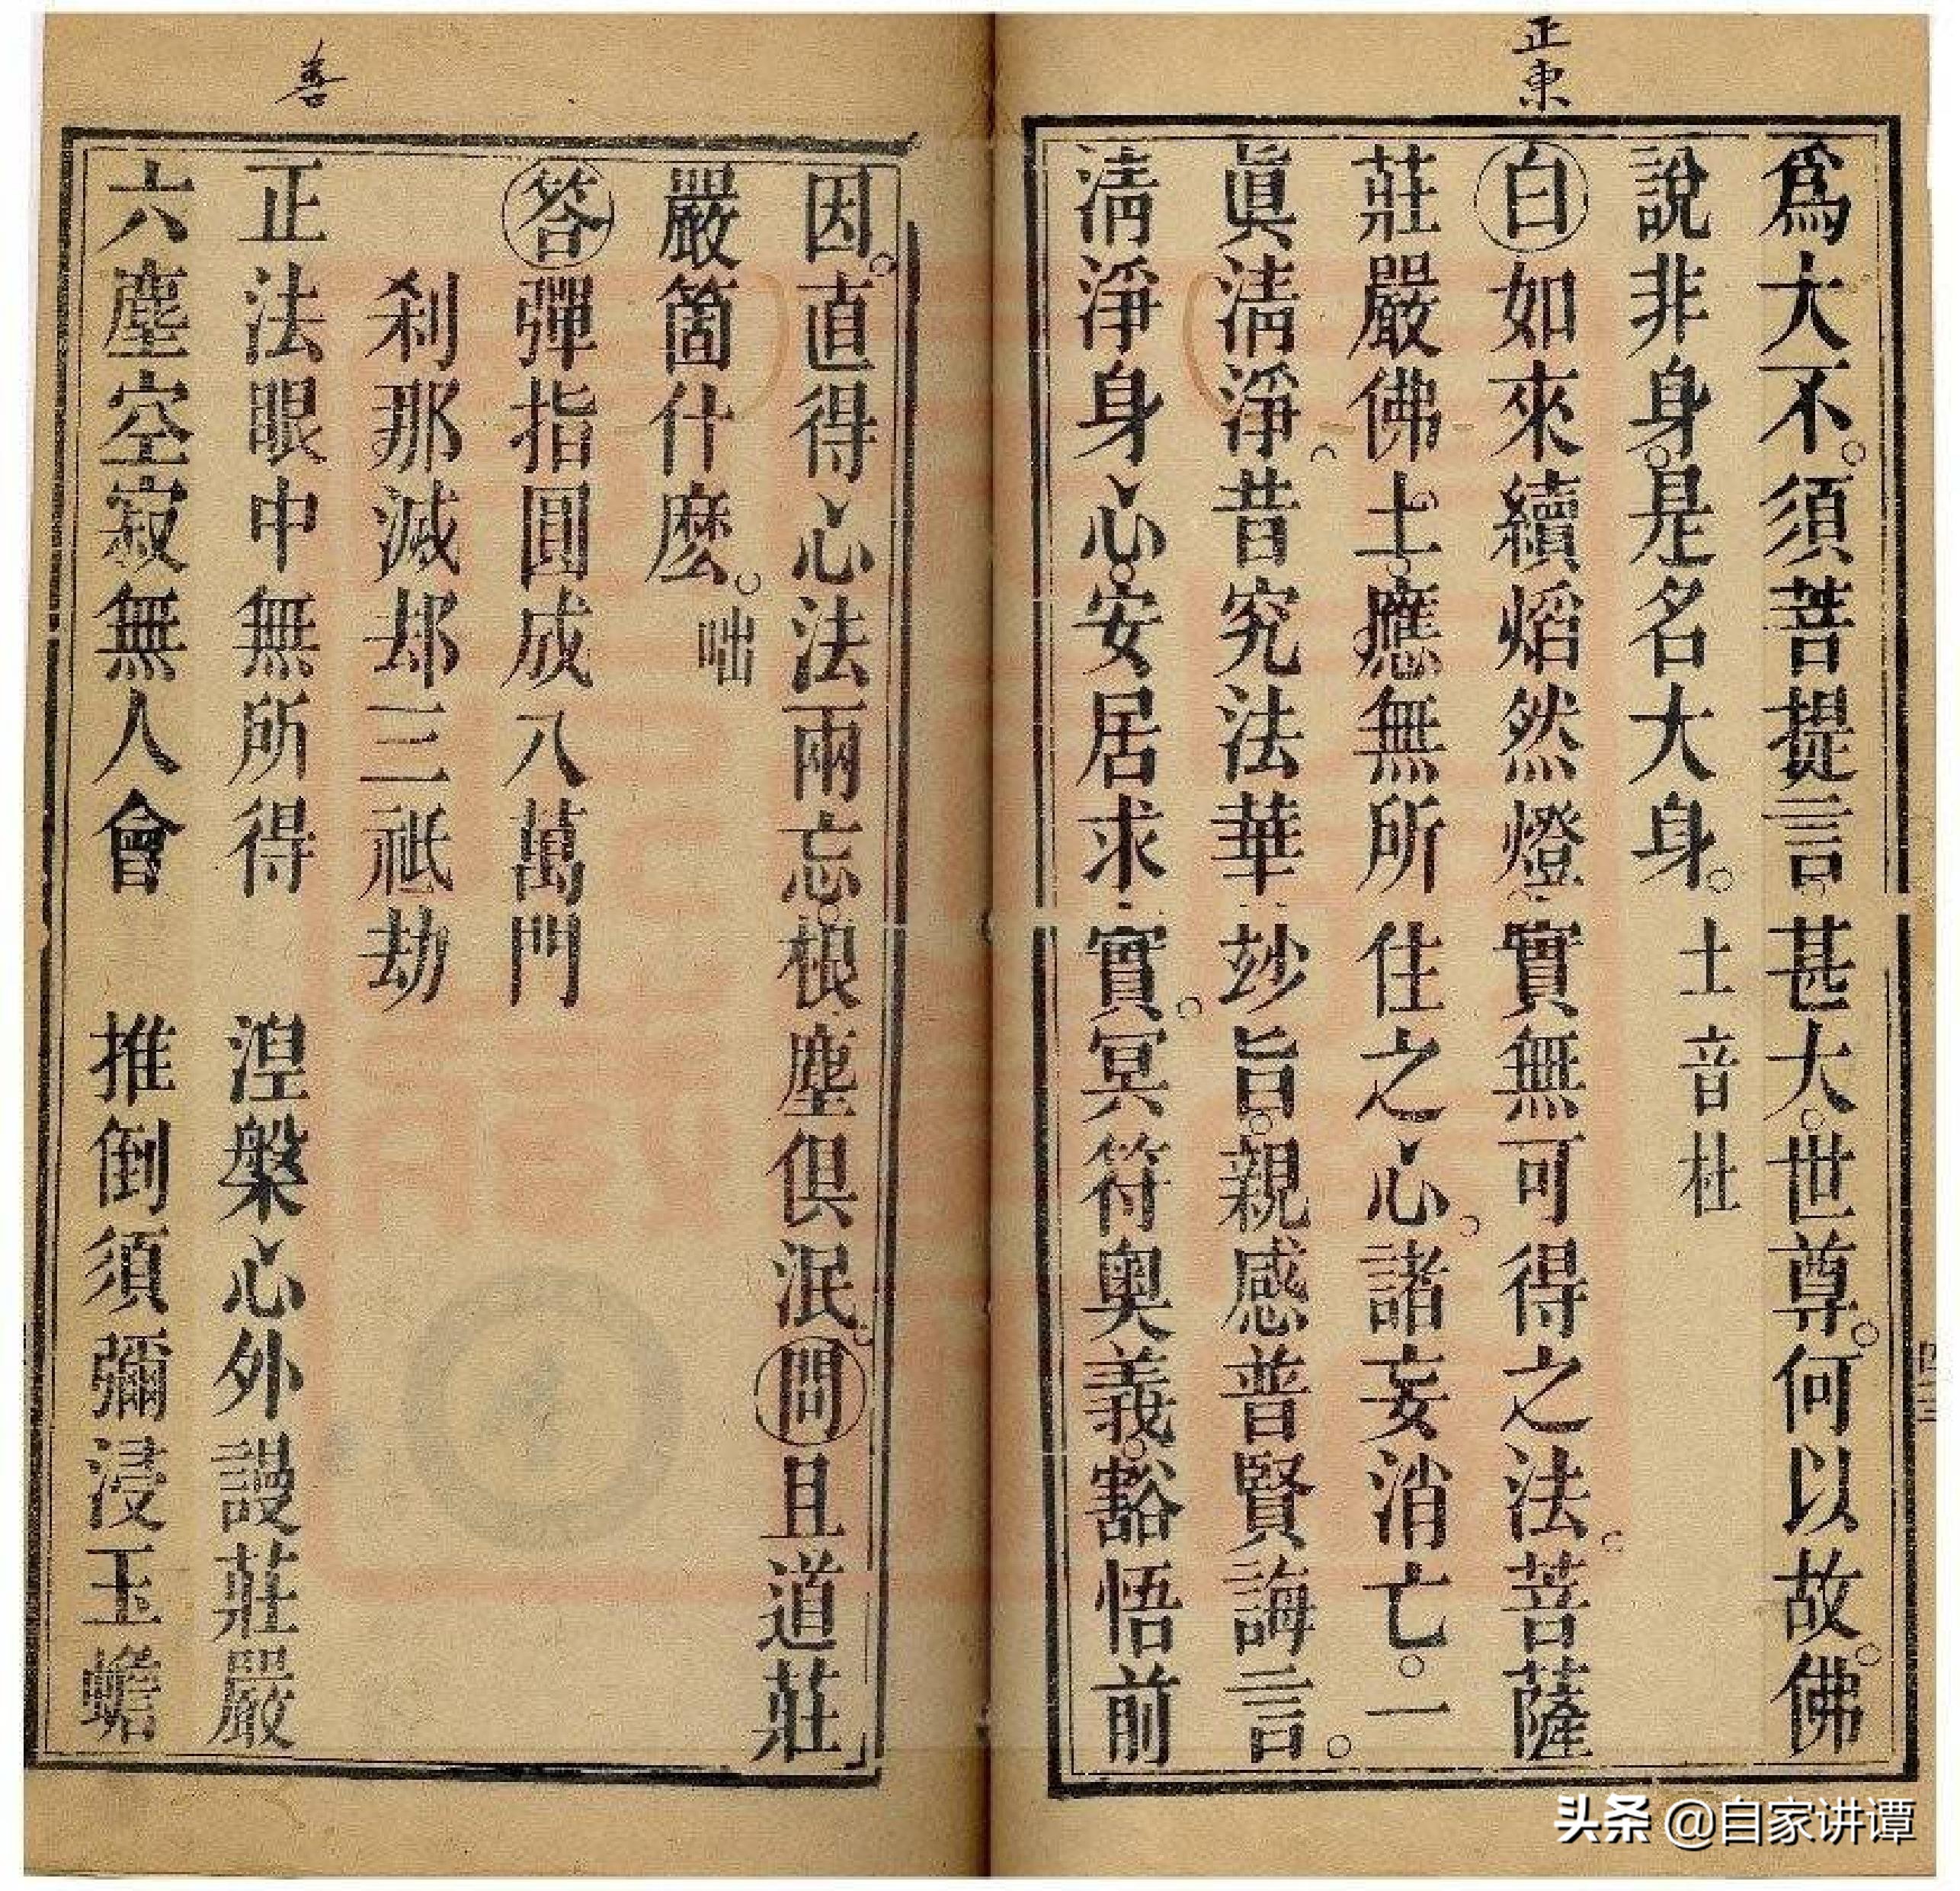 正東
爲大不。須菩提言。甚大。世尊。何以故。佛
說非身。是名大身。 土音杜
白如來續燄然燈。實無可得之法。菩薩
莊嚴佛土。應無所住之心。諸妄消亡。一
眞淸淨。昔究法華玅旨。親感普賢誨言。
淸淨身心。安居求實。冥符奧義。豁悟前
善
因。直得心法兩忘。根塵俱泯。問且道莊
嚴箇什麽。 咄
答彈指圓成八萬門
刹那滅却三祇劫
正法眼中無所得 涅槃心外謾莊嚴
六塵空寂無人會 推倒須彌浸玉蟾
头条 @自家讲谭